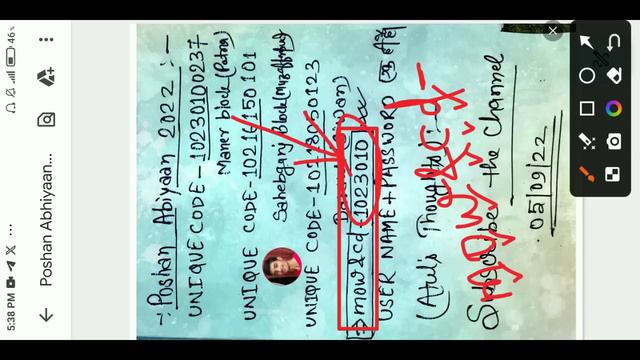 5:38 PM
46%
Poshan Abhiyaan...
-: Poshan Abiyaan 2022 :-
UNIQUE CODE - 10230100237
Maner block (Patna)
UNIQUE CODE - 10216150101
Sahebganj block (Muzaffarpur)
UNIQUE CODE - 10218050123
mow&cd 1023010
USER NAME + PASSWORD
(Atul's Thoughts) :-
Subscribe the Channel
05/09/22